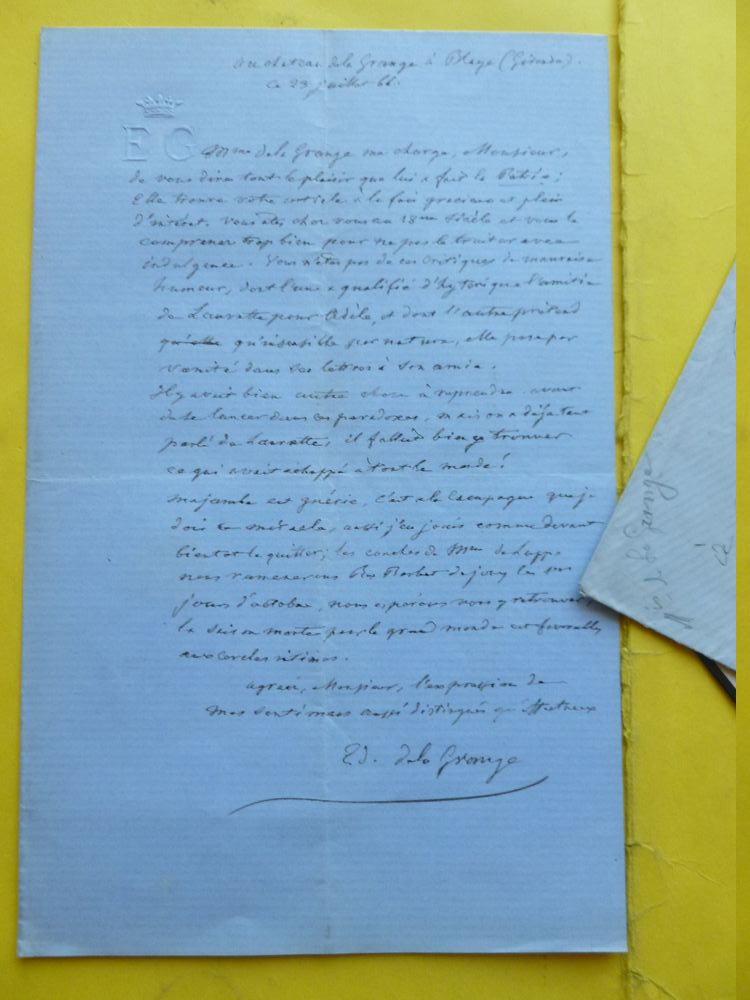 au chateau de la Grange à Blaye (Gironde).
ce 23 juillet 66.
E G
Mme de la Grange me charge, Monsieur,
de vous dire tout le plaisir que lui a fait la Patrie;
Elle trouve votre article à la fois gracieux et plein
d'intérêt. Vous etes chez vous au 18me siècle et vous le
comprenez trop bien pour ne pas le traiter avec
indulgence. Vous n'etes pas de ces critiques de mauvaise
humeur, dont l'une a qualifié d'hystérique l'amitié
de Laurette pour Adèle, et dont l'autre prétend
qu'elle qu'insensible par nature, elle pose par
vanité dans ses lettres à son amie.
il y avait bien autre chose à reprendre avant
de se lancer dans ces paradoxes, mais on a déja tant
parlé de Laurette, il fallait bien trouver
ce qui avait échappé à tout le monde!
ma jambe est guérie, c'est à la campagne que je
dois ce miracle, aussi j'en jouis comme devant
bientot la quitter; les couches de Mme de Luppé
nous ramenerons Rue Barbet de jouy les 1ers
jours d'octobre, nous esperons vous y retrouver,
la saison morte pour le grand monde est favorable
aux cercles intimes.
agréez, Monsieur, l'expression de
mes sentimens aussi distingués qu'affectueux
Ed. de la Grange
Mis de la Grange
à